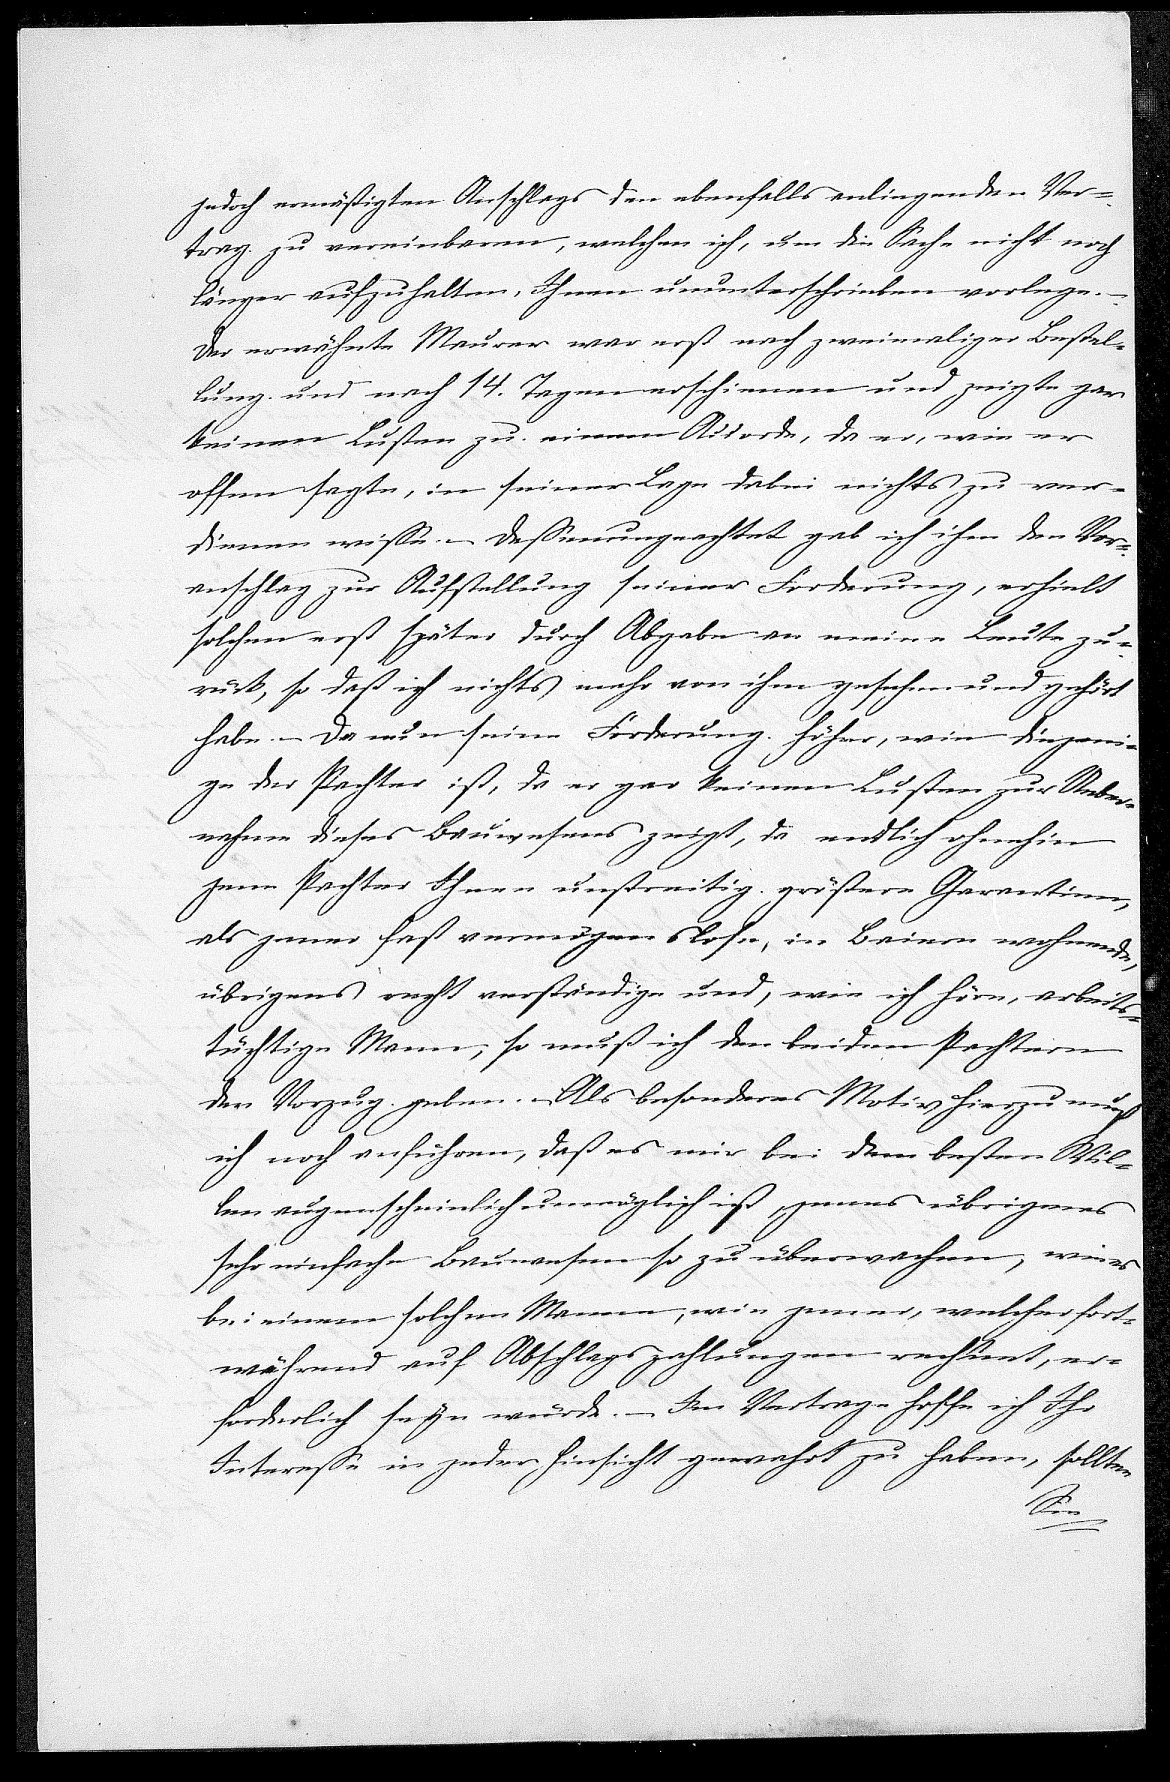 jedoch ermäßigten Anschlags den ebenfalls anliegenden Ver-
trag zu vereinbaren, welchen ich, um die Sache nicht noch
länger aufzuhalten, Ihnen ununterschrieben vorlege. –
Der erwähnte Maurer war erst nach zweimaliger Bestel-
lung und nach 14. Tagen erschienen und zeigte gar
keinen Lusten zu einem Accorde, da er, wie er
offen sagte, in seiner Lage dabei nichts zu ver-
dienen wisse. – Dessenungeachtet gab ich ihm den Vor-
anschlag zur Aufstellung seiner Forderung, erhielt
solchen erst später durch Abgabe an meine Leute zu-
rück, so daß ich nichts mehr von ihm gesehen und gehört
habe. – Da nun seine Forderung höher, wie diejeni-
ge der Pachter ist, da er gar keinen Lusten zur Ueber-
nahme dieses Bauwesens zeigt, da endlich ohnehin
jene Pachter Ihnen unstreitig größere Garantien,
als jener fast vermögenslose, in Baiern wohnende,
übrigens recht verständige und, wie ich höre, arbeits-
tüchtige Mann, so muß ich den beiden Pachtern
den Vorzug geben. – Als besonderes Motiv hierzu muß
ich noch anführen, daß es mir bei dem besten Wil-
len augenscheinlich unmöglich ist, jenes übrigens
sehr einfache Bauwesen so zu überwachen, wie es
bei einem solchen Manne, wie jener, welcher fort-
während auf Abschlagszahlungen rechnet, er-
forderlich seyn würde. – Im Vertrage hoffe ich Ihr
Interesse in jeder Hinsicht gewahrt zu haben, sollten
Sie